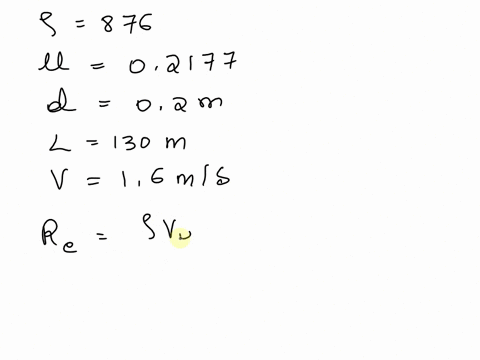 ρ = 876
μ = 0.2177
d = 0.2 m
L = 130 m
V = 1.6 m/s
Re = ρV